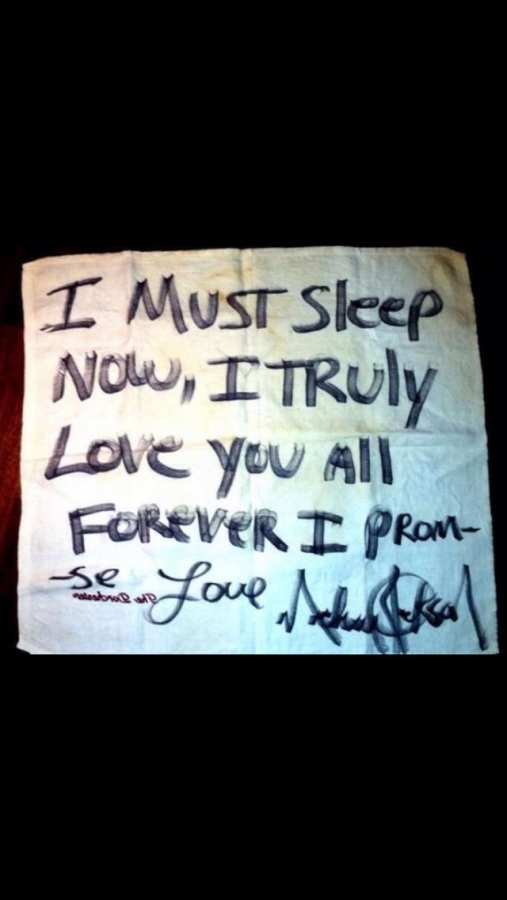 I MUST Sleep
NOW, I TRULY
LOVE YOU All
FOREVER I PROM-
-se Love Michael Jackson
The Dorchester